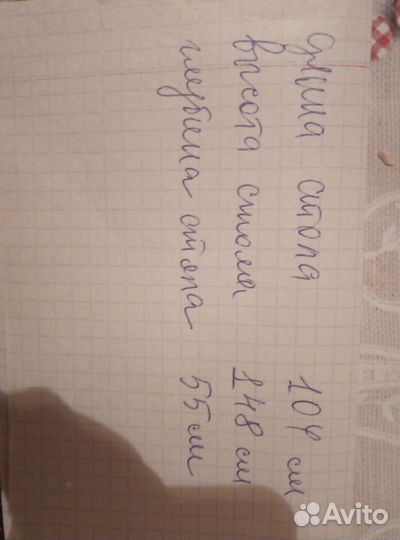 длина стола 104 см
высота стола 148 см
глубина стола 55 см
Avito